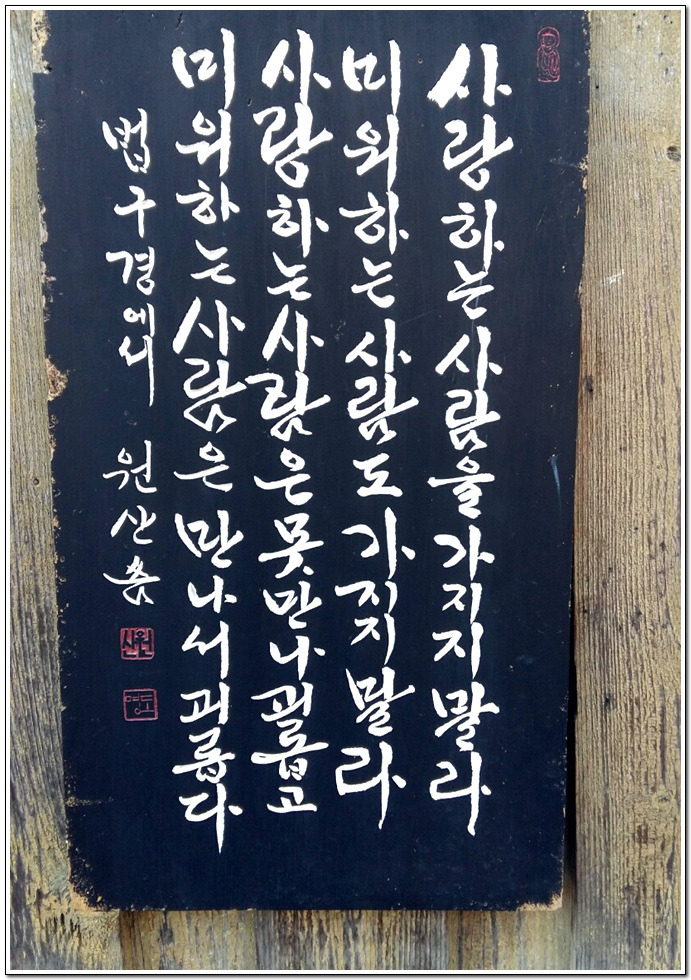 사랑하는사람을가지지말라
미워하는사람도가지지말라
사랑하는사람은못만나괴롭고
미워하는사람은만나서괴롭다
법구경에서 원산
원산